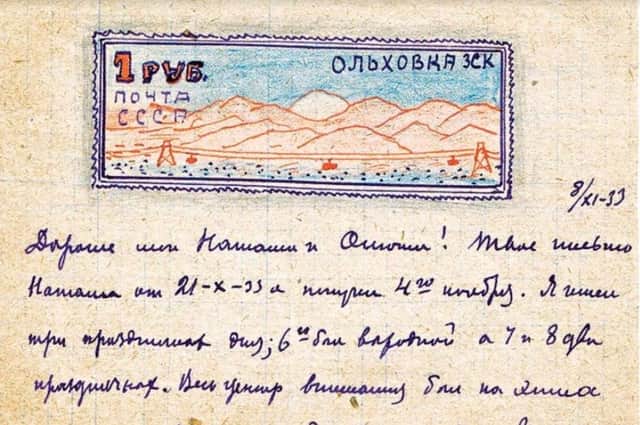 1 РУБ.
ОЛЬХОВКА ЗСК
ПОЧТА
СССР
8/XI-33
Дорогие мои Наташа и Олюши! Твое письмо
Наташа от 21-X-33 я получил 4го ноября. Я имел
три праздничных дня; 6го был выходной а 7 и 8 два
праздничных. Весь центр внимания был на